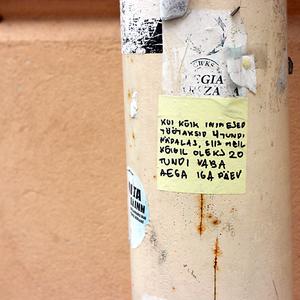 EGIA
RSZA
KUI KÕIK INIMESED
TÖÖTAKSID 4 TUNDI
NÄDALAS, SIIS MEIL
KÕIGIL OLEKS 20
TUNDI VABA
AEGA IGA PÄEV
LINN